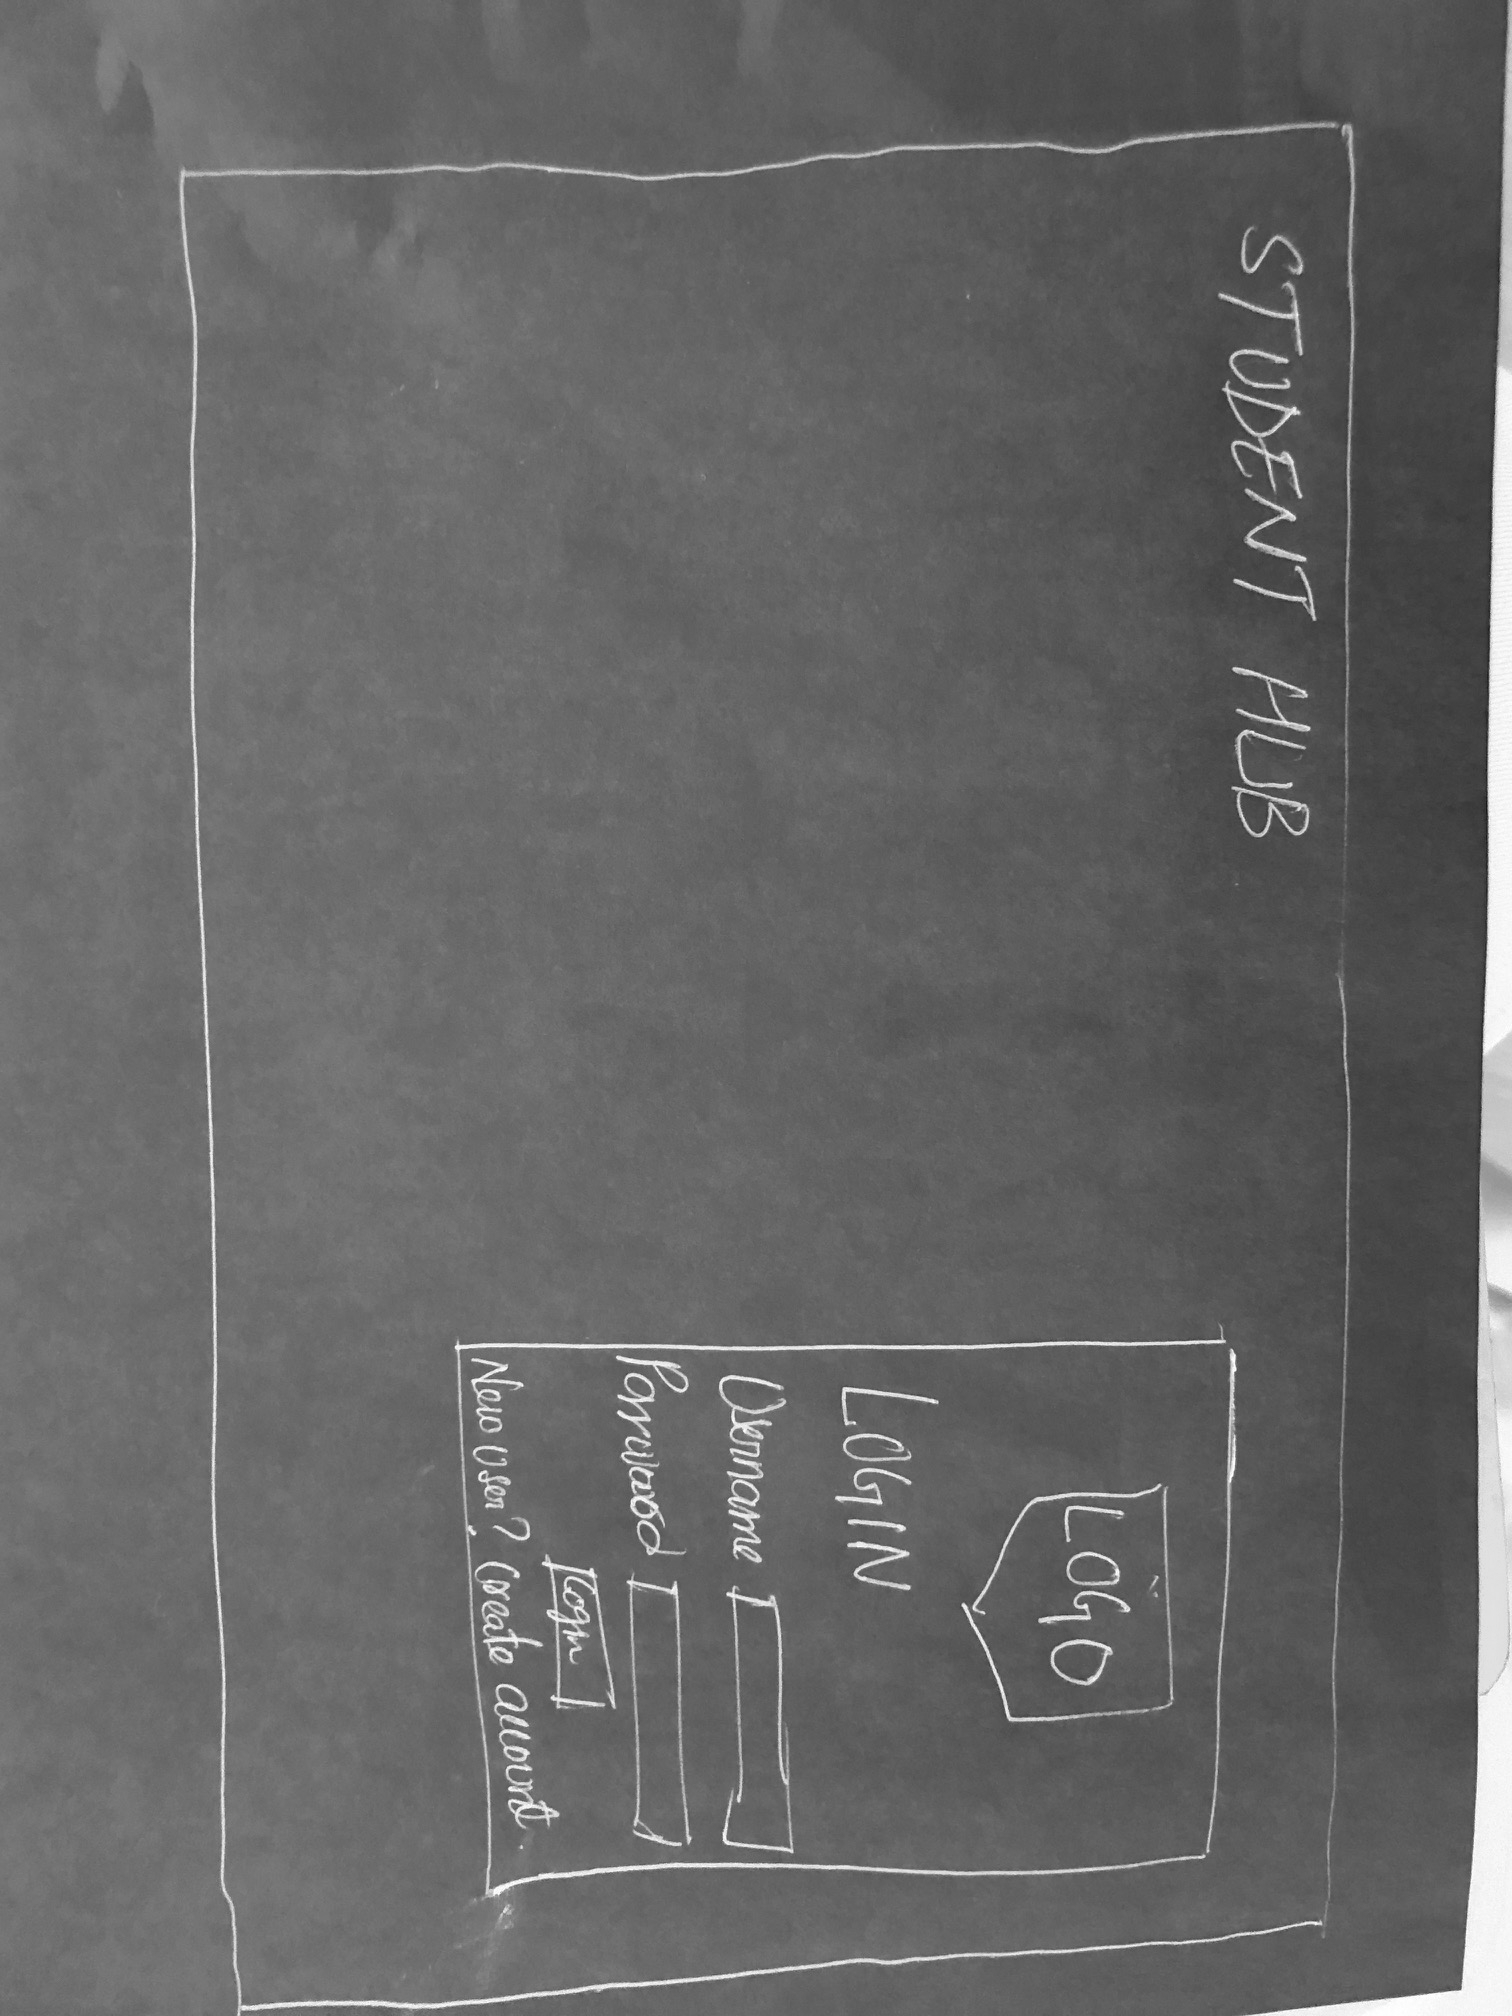 STUDENT HUB
LOGO
LOGIN
Username
Password
Login
New User? Create account.